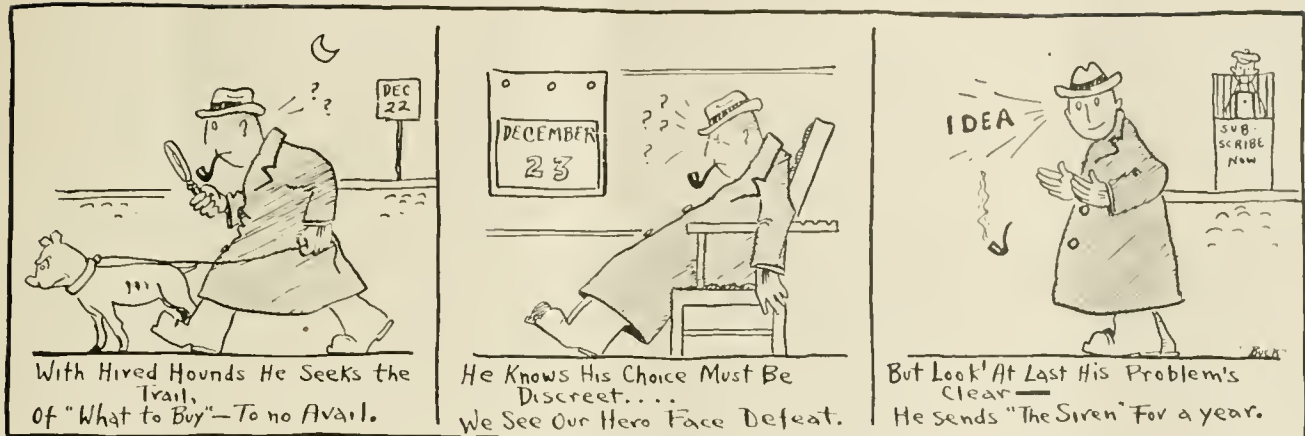 DEC
22
? ?
?
With Hired Hounds He Seeks the
Trail,
Of "What to Buy" — To no Avail.
DECEMBER
23
? ?
? ?
?
?
He Knows His Choice Must Be
Discreet....
We See Our Hero Face Defeat.
IDEA
SUB-
SCRIBE
NOW
But Look! At Last His Problem's
Clear —
He sends "The Siren" For a year.